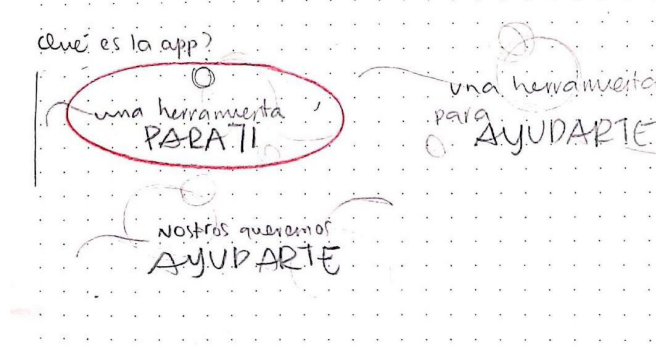 Qué es la app?
una herramienta
PARA TI
una herramienta
para
AYUDARTE
Nostros queremos
AYUDARTE